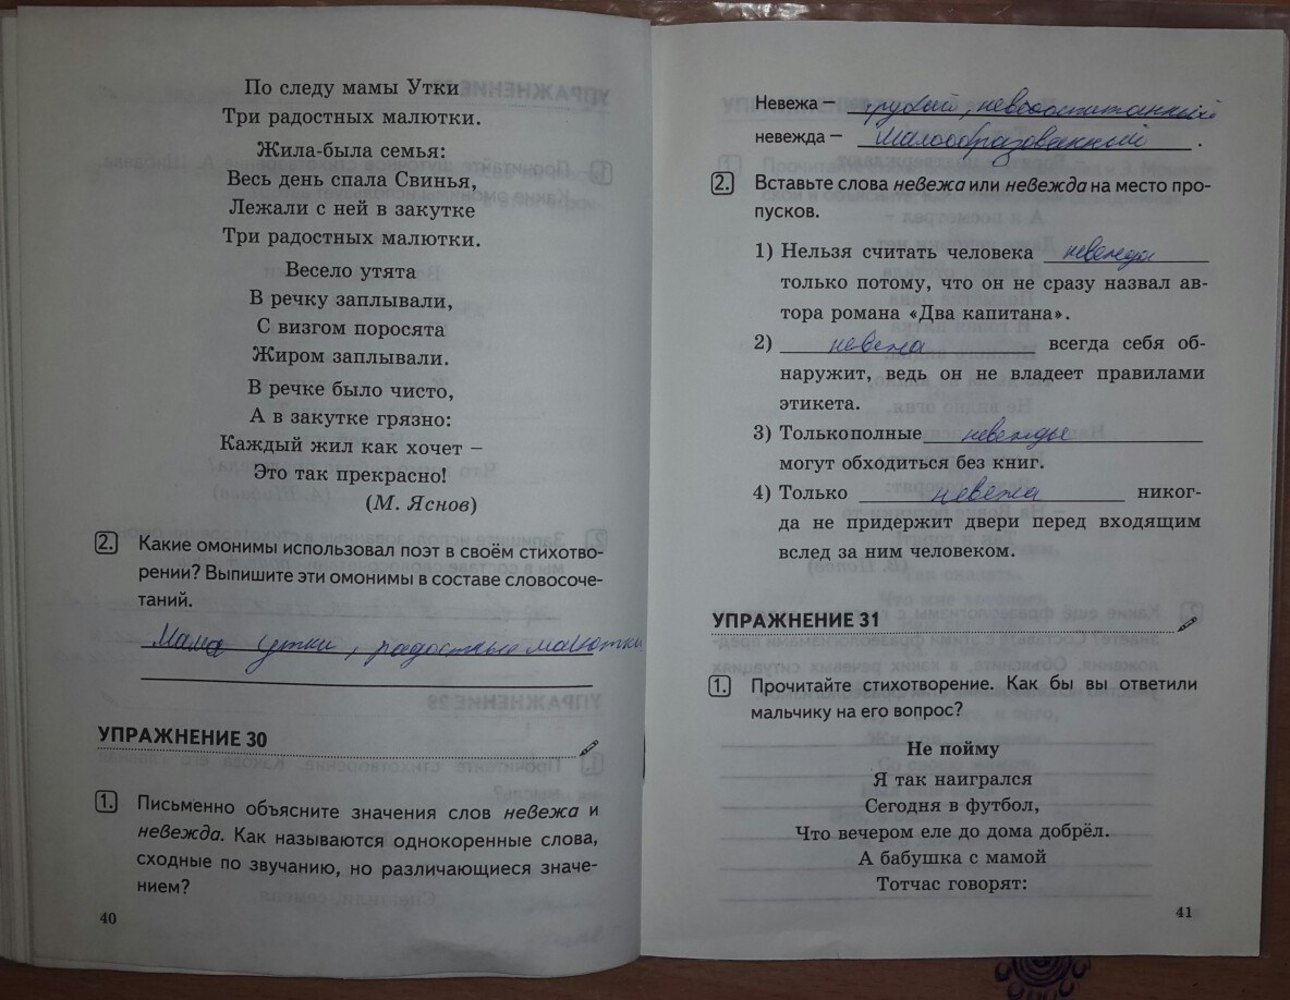 По следу мамы Утки
Три радостных малютки.
Жила-была семья:
Весь день спала Свинья,
Лежали с ней в закутке
Три радостных малютки.
Весело утята
В речку заплывали,
С визгом поросята
Жиром заплывали.
В речке было чисто,
А в закутке грязно:
Каждый жил как хочет –
Это так прекрасно!
(М. Яснов)
2. Какие омонимы использовал поэт в своём стихотво-
рении? Выпишите эти омонимы в составе словосоче-
таний.
Мама утки, радостные малютки
УПРАЖНЕНИЕ 30
1. Письменно объясните значения слов невежа и
невежда. Как называются однокоренные слова,
сходные по звучанию, но различающиеся значе-
нием?
40
Невежа – грубый, невоспитанный
невежда – малообразованный.
2. Вставьте слова невежа или невежда на место про-
пусков.
1) Нельзя считать человека невежда
только потому, что он не сразу назвал ав-
тора романа «Два капитана».
2) невежа всегда себя об-
наружит, ведь он не владеет правилами
этикета.
3) Только полные невежды
могут обходиться без книг.
4) Только невежа никог-
да не придержит двери перед входящим
вслед за ним человеком.
УПРАЖНЕНИЕ 31
1. Прочитайте стихотворение. Как бы вы ответили
мальчику на его вопрос?
Не пойму
Я так наигрался
Сегодня в футбол,
Что вечером еле до дома добрёл.
А бабушка с мамой
Тотчас говорят:
41